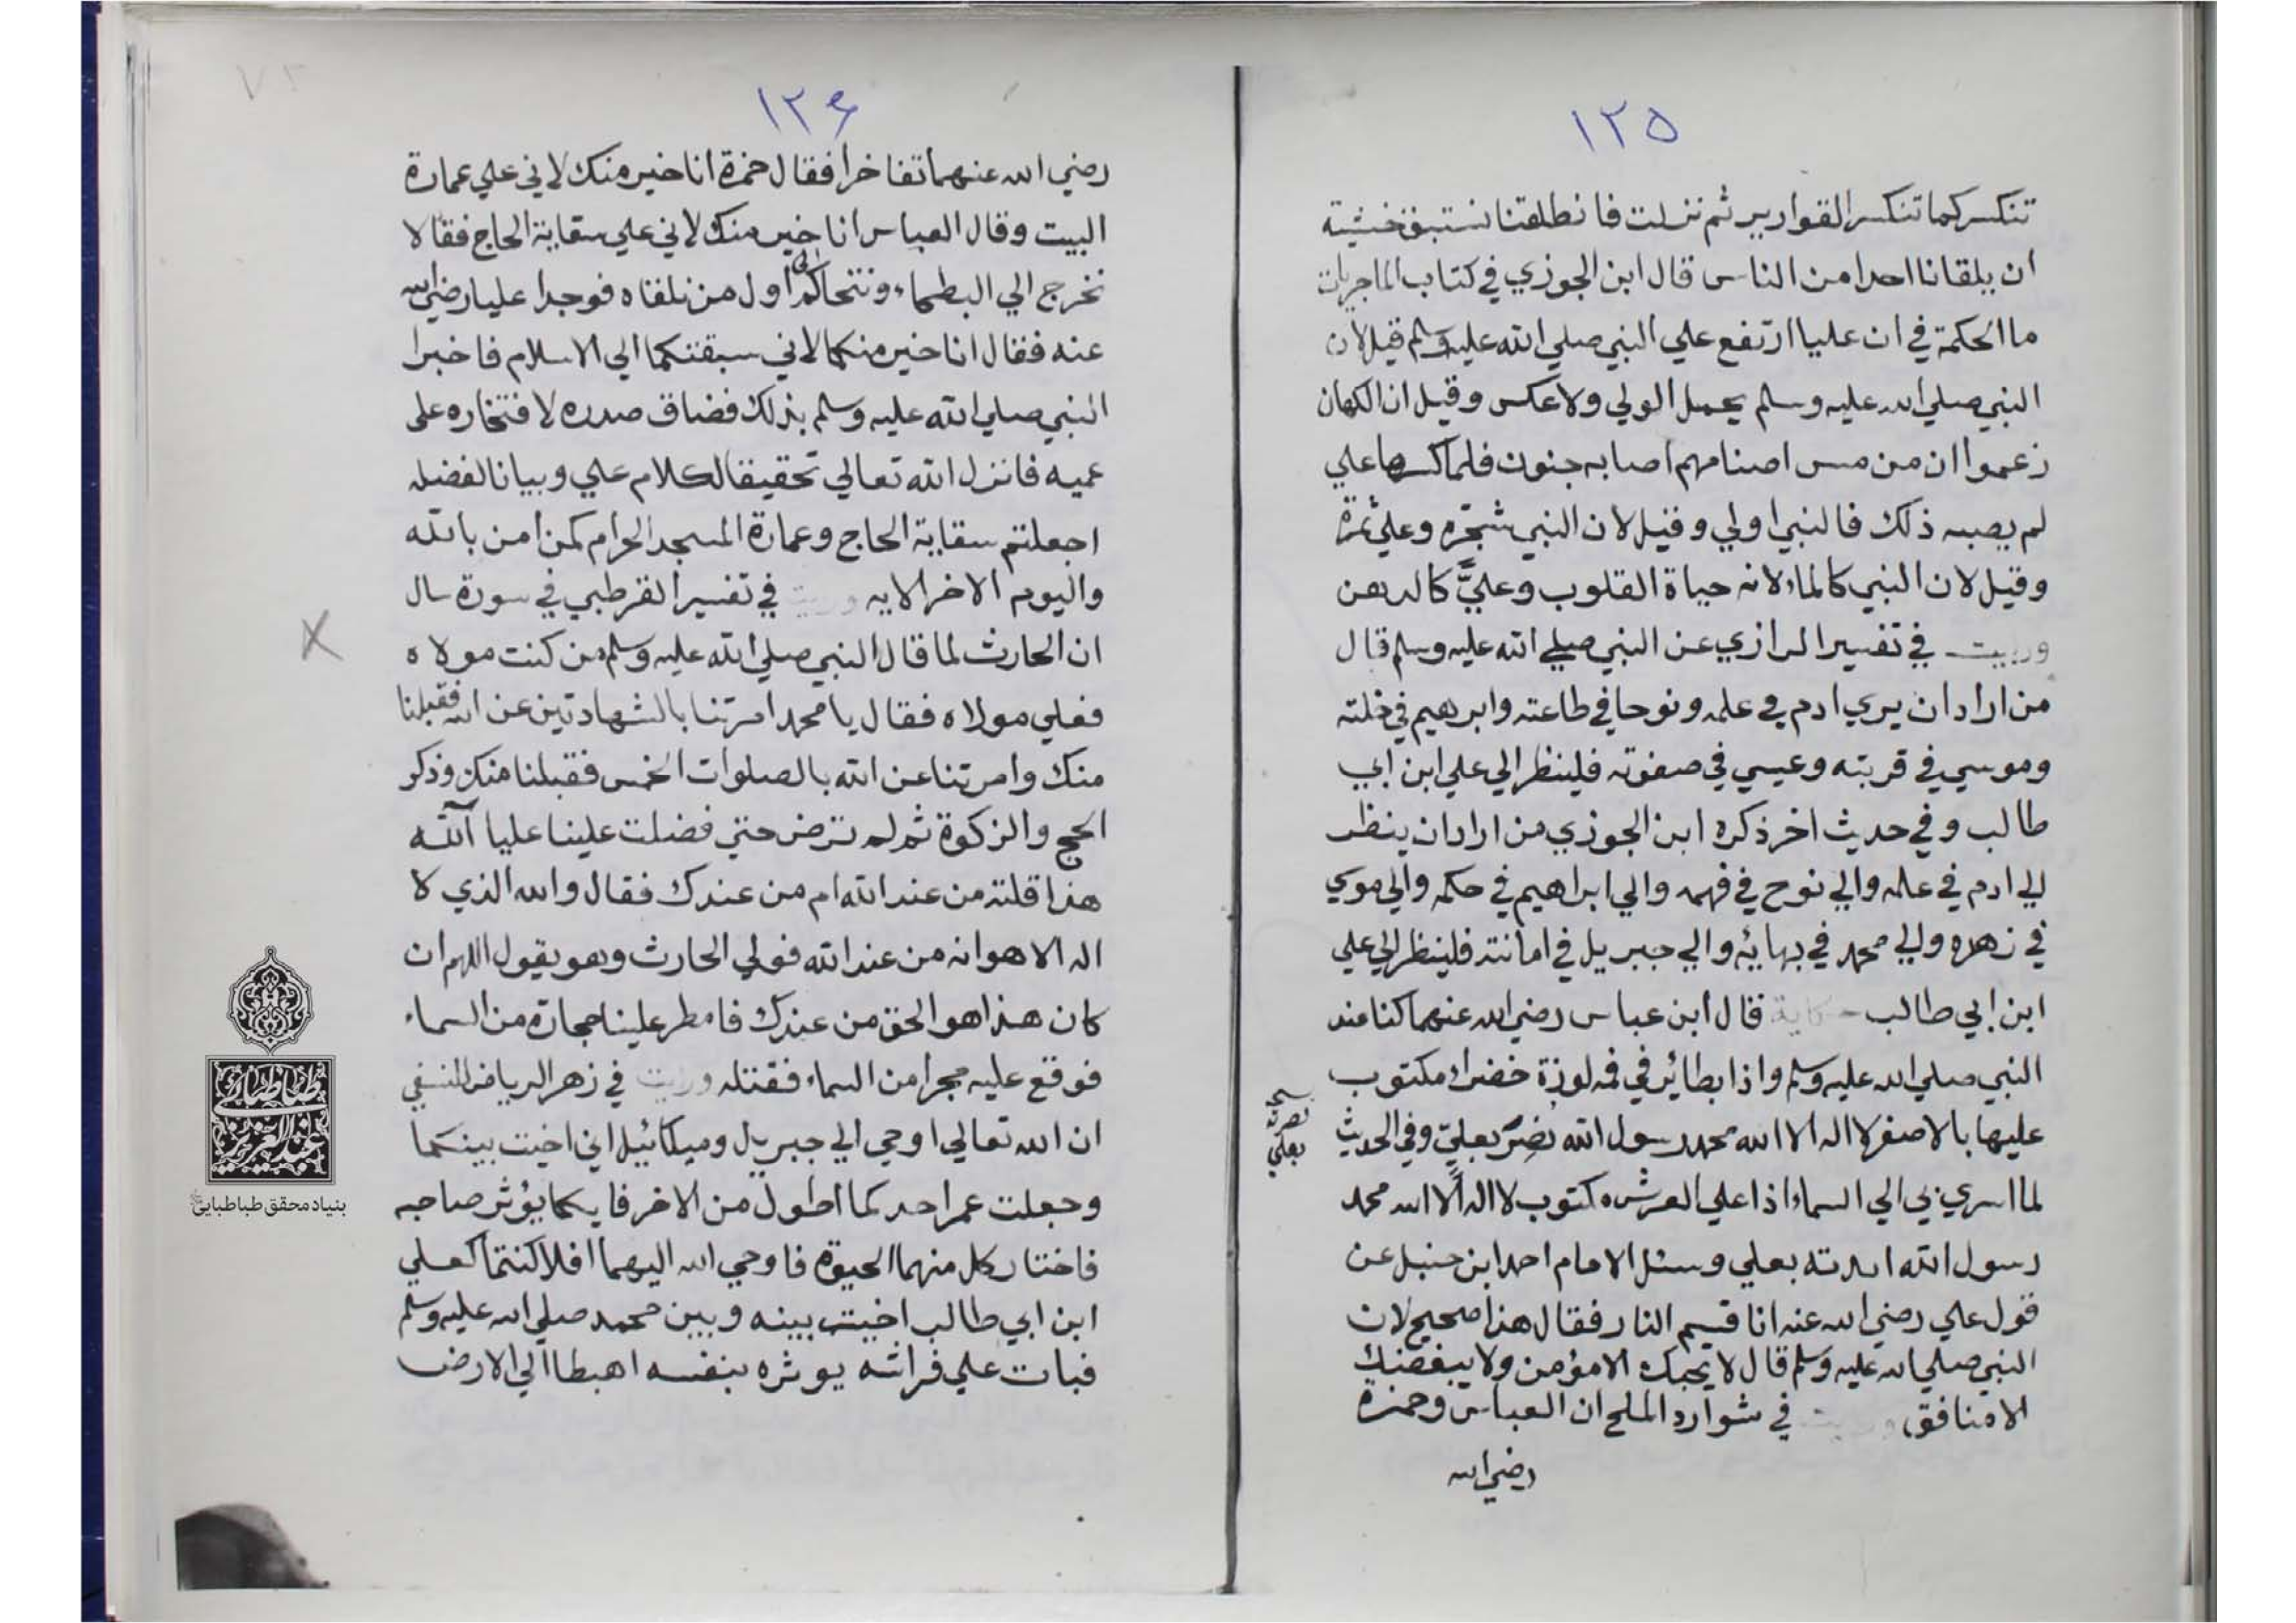 ١٢٥
تنكسر كما تنكسر القوارير ثم نزلت فانطلقنا نستبق خشية
ان يلقانا احدا من الناس قال ابن الجوزي في كتاب الماجريات
ما الحكمة في ان عليا ارتفع علي النبي صلي الله عليه وسلم قيل لان
النبي صلي الله عليه وسلم يحمل الولي ولا عكس وقيل ان الكهان
زعموا ان من مس اصنامهم اصابه جنون فلما كسرها علي
لم يصبه ذلك فالنبي اولي وقيل لان النبي شجرة وعلي ثمرة
وقيل لان النبي كالماء لانه حياة القلوب وعليٌّ كالدهن
ورايت في تفسير الرازي عن النبي صلي الله عليه وسلم قال
من اراد ان يري ادم في علمه ونوحا في طاعته وابرهيم في خلته
وموسي في قربته وعيسي في صفوته فلينظر الي علي ابن ابي
طالب وفي حديث اخر ذكره ابن الجوزي من اراد ان ينظر
الي ادم في علمه والي نوح في فهمه والي ابراهيم في حكمه والي موسي
في زهده والي محمد في بهائه والي جبريل في امانته فلينظر الي علي
ابن ابي طالب حكاية قال ابن عباس رضي الله عنهما كنا عند
النبي صلي الله عليه وسلم واذا بطائر في فمه لوزة خضراء مكتوب
عليها بالاصفر لا اله الا الله محمد رسول الله نصر بعلي وفي الحديث
نصرته
بعلي
لما اسري بي الي السماء اذا علي العرش مكتوب لا اله الا الله محمد
رسول الله ايدته بعلي وسئل الامام احمد ابن حنبل عن
قول علي رضي الله عنه انا قسيم النار فقال هذا صحيح لان
النبي صلي الله عليه وسلم قال لا يحبك الا مؤمن ولا يبغضك
الا منافق ورايت في شوارد الملح ان العباس وحمزة
رضي الله
١٢۶
رضي الله عنهما تفاخرا فقال حمزة انا خير منك لاني علي عمارة
البيت وقال العباس انا خير منك لاني علي سقاية الحاج فقالا
نخرج الي البطحاء ونتحاكم الي اول من نلقاه فوجدا عليا رضي الله
عنه فقال انا خير منكما لاني سبقتكما الي الاسلام فاخبرا
النبي صلي الله عليه وسلم بذلك فضاق صدره لافتخاره علي
عميه فانزل الله تعالي تحقيقا لكلام علي وبيانا لفضله
اجعلتم سقاية الحاج وعمارة المسجد الحرام كمن امن بالله
واليوم الاخر الايه ورايت في تفسير القرطبي في سورة سال
ان الحارث لما قال النبي صلي الله عليه وسلم من كنت مولاه
فعلي مولاه فقال يا محمد امرتنا بالشهادتين عن الله فقبلنا
منك وامرتنا عن الله بالصلوات الخمس فقبلنا منك وذكر
الحج والزكوة ثم لم ترض حتي فضلت علينا عليا آلله
هذا قلته من عند الله ام من عندك فقال والله الذي لا
اله الا هو انه من عند الله فولي الحارث وهو يقول اللهم ان
كان هذا هو الحق من عندك فامطر علينا حجارة من السماء
فوقع عليه حجرا من السماء فقتله ورايت في زهر الرياض للنسفي
ان الله تعالي اوحي الي جبريل وميكائيل اني اخيت بينكما
وجعلت عمر احدكما اطول من الاخر فايكما يؤثر صاحبه
فاختار كل منهما الحيوة فاوحي الله اليهما افلا كنتما كعلي
ابن ابي طالب اخيت بينه وبين محمد صلي الله عليه وسلم
فبات علي فراشه يوثره بنفسه اهبطا الي الارض
طباطبایی
عبدالعزیز
بنیاد محقق طباطبایی